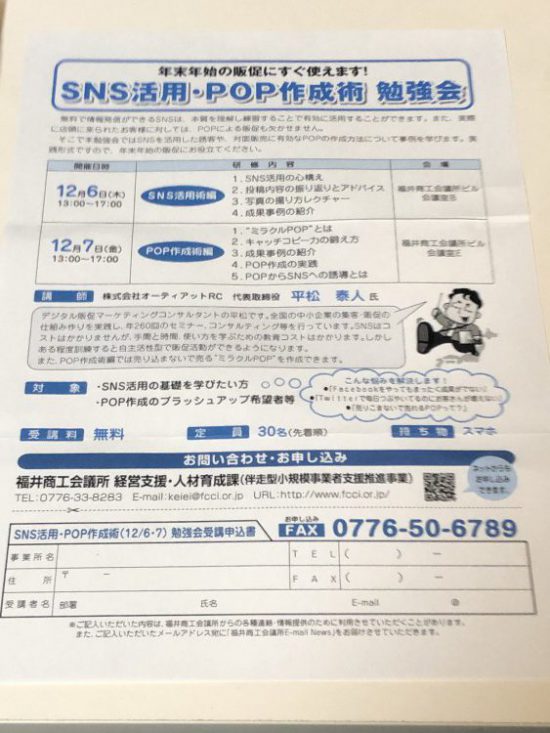 年末年始の販促にすぐ使えます!
SNS活用・POP作成術 勉強会
無料で情報発信ができるSNSは、本質を理解し練習することで有効に活用することができます。また、実際
に店頭に来られたお客様に対しては、POPによる販促も欠かせません。
そこで本勉強会ではSNSを活用した誘客や、対面販売に有効なPOPの作成方法について事例を学びます。実
践形式ですので、年末年始の販促にお役立てください。
開催日時 研修内容 会場
12月6日(木)
13:00~17:00
SNS活用術編
1. SNS活用の心構え
2. 投稿内容の振り返りとアドバイス
3. 写真の撮り方レクチャー
4. 成果事例の紹介
福井商工会議所ビル
会議室B
12月7日(金)
13:00~17:00
POP作成術編
1. "ミラクルPOP"とは
2. キャッチコピー力の鍛え方
3. 成果事例の紹介
4. POP作成の実践
5. POPからSNSへの誘導とは
福井商工会議所ビル
会議室E
講師 株式会社オーティアットRC 代表取締役 平松 泰人 氏
デジタル販促マーケティングコンサルタントの平松です。全国の中小企業の集客・販促の
仕組み作りを実践し、年260回のセミナー、コンサルティング等を行っています。SNSはコ
ストはかかりませんが、手間と時間、使い方を学ぶための教育コストはかかります。しかし
ある程度訓練すると自主活性型で販促活動ができるようになります。
また、POP作成術編では売り込まないで売る"ミラクルPOP"を作成できます。
対象 ・SNS活用の基礎を学びたい方
・POP作成のブラッシュアップ希望者等
こんな悩みを解決します!
●「Facebookをやってもまったく成果がでない」
●「Twitterで毎日つぶやいてるのにお客さんが増えない」
●「売りこまないで売れるPOPって?」
受講料 無料 定員 30名(先着順) 持ち物 スマホ
お問い合わせ・お申し込み
福井商工会議所 経営支援・人材育成課(伴走型小規模事業者支援推進事業)
TEL:0776-33-8283 E-mail:keiei@fcci.or.jp URL:http://www.fcci.or.jp/
ネットからも
お申し込み
できます。
SNS活用・POP作成術(12/6・7) 勉強会受講申込書 お申し込み FAX 0776-50-6789
事業所名 TEL ( ) −
住所 〒 − FAX ( ) −
受講者名 部署 氏名 E-mail @
※ご記入いただいた内容は、福井商工会議所からの各種連絡・情報提供のために利用させていただくことがあります。
また、ご記入いただいたメールアドレス宛に「福井商工会議所E-mail News」をお届けさせていただきます。